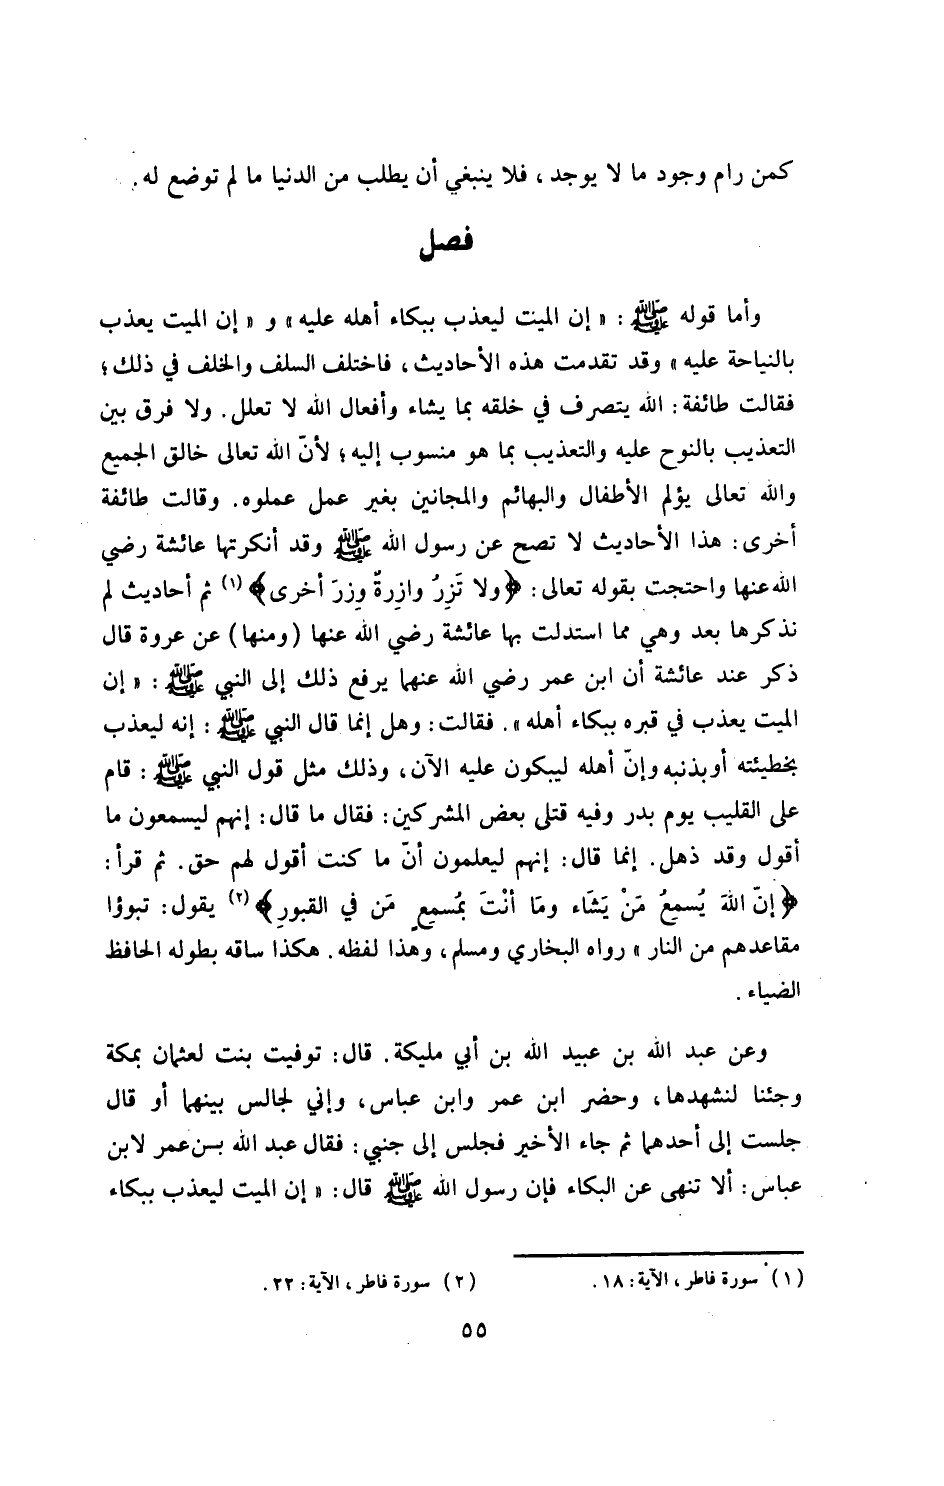 كمن رام وجود ما لا يوجد ، فلا ينبغي أن يطلب من الدنيا ما لم توضع له .
فصل
وأما قوله ﷺ : « إن الميت ليعذب ببكاء أهله عليه » و « إن الميت يعذب
بالنياحة عليه » وقد تقدمت هذه الأحاديث ، فاختلف السلف والخلف في ذلك ؛
فقالت طائفة : الله يتصرف في خلقه بما يشاء وأفعال الله لا تعلل . ولا فرق بين
التعذيب بالنوح عليه والتعذيب بما هو منسوب إليه ؛ لأنّ الله تعالى خالق الجميع
والله تعالى يؤلم الأطفال والبهائم والمجانين بغير عمل عملوه . وقالت طائفة
أخرى : هذا الأحاديث لا تصح عن رسول الله ﷺ وقد أنكرتها عائشة رضي
الله عنها واحتجت بقوله تعالى : ﴿ولا تَزِرُ وازِرةٌ وِزرَ أخرى﴾ (١) ثم أحاديث لم
نذكرها بعد وهي مما استدلت بها عائشة رضي الله عنها (ومنها) عن عروة قال
ذكر عند عائشة أن ابن عمر رضي الله عنهما يرفع ذلك إلى النبي ﷺ : « إن
الميت يعذب في قبره ببكاء أهله » . فقالت : وهل إنما قال النبي ﷺ : إنه ليعذب
بخطيئته أو بذنبه وإنّ أهله ليبكون عليه الآن ، وذلك مثل قول النبي ﷺ : قام
على القليب يوم بدر وفيه قتلى بعض المشركين : فقال ما قال : إنهم ليسمعون ما
أقول وقد ذهل . إنما قال : إنهم ليعلمون أنّ ما كنت أقول لهم حق . ثم قرأ :
﴿إنّ اللهَ يُسمِعُ مَنْ يَشَاء ومَا أنْتَ بمُسمِعٍ مَن في القبورِ﴾ (٢) يقول : تبوؤا
مقاعدهم من النار » رواه البخاري ومسلم ، وهذا لفظه . هكذا ساقه بطوله الحافظ
الضياء .
وعن عبد الله بن عبيد الله بن أبي مليكة . قال : توفيت بنت لعثمان بمكة
وجئنا لنشهدها ، وحضر ابن عمر وابن عباس ، وإني لجالس بينهما أو قال
جلست إلى أحدهما ثم جاء الأخير فجلس إلى جنبي : فقال عبد الله بن عمر لابن
عباس : ألا تنهى عن البكاء فإن رسول الله ﷺ قال : « إن الميت ليعذب ببكاء
(١) سورة فاطر ، الآية : ١٨ .
(٢) سورة فاطر ، الآية : ٢٢ .
٥٥